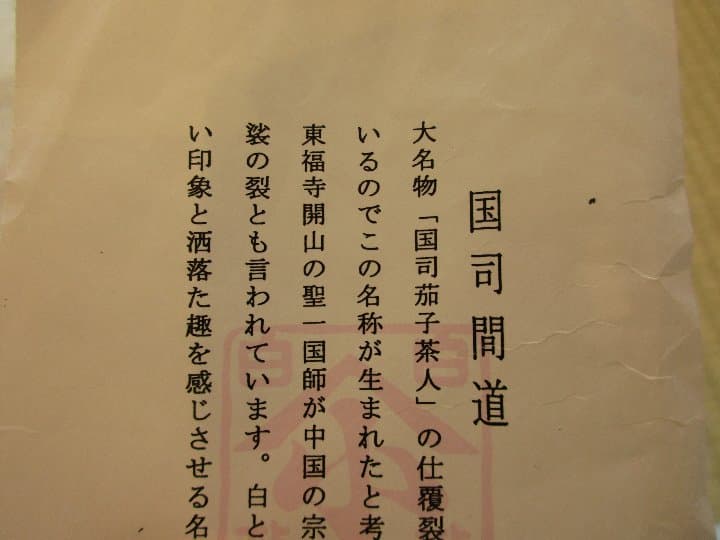 国司間道
大名物「国司茄子茶人」の仕覆裂
いるのでこの名称が生まれたと考
東福寺開山の聖一国師が中国の宗
裟の裂とも言われています。白と
い印象と洒落た趣を感じさせる名